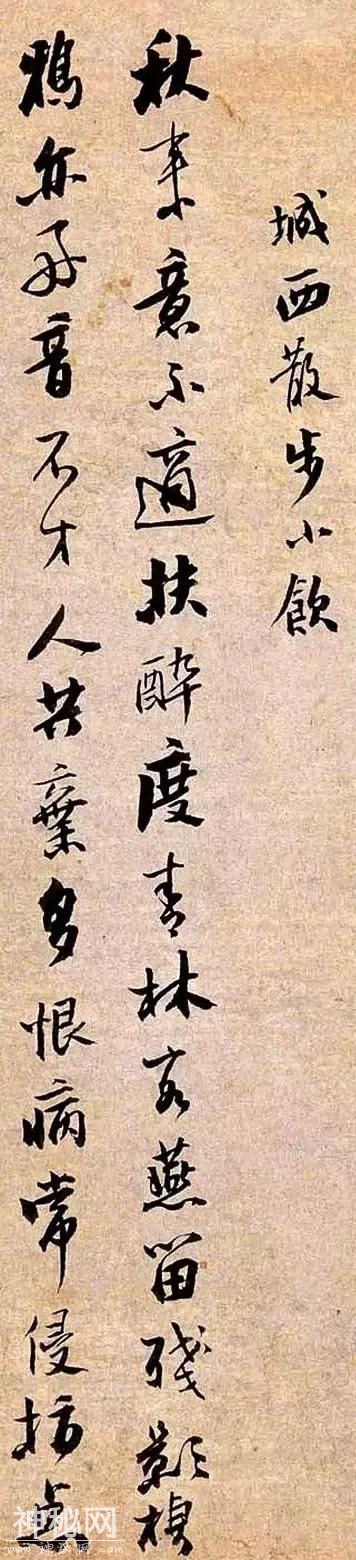 城西散步小飲
秋来意不適扶醉度青林客燕留殘影棲
鴉亦好音不才人共棄多恨病常侵拚
神秘网